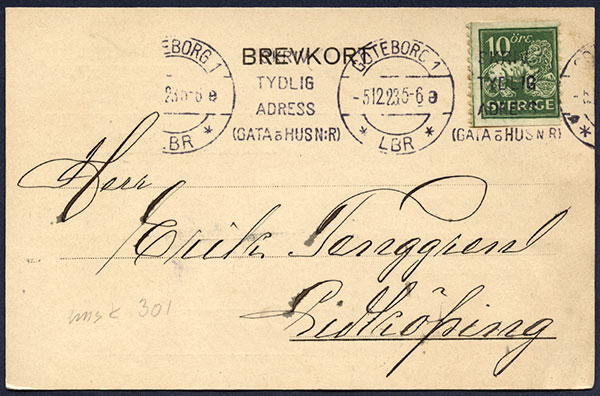 BREVKORT
GÖTEBORG 1
-5 12.23 5-6 e
* LBR *
SKRIV
TYDLIG
ADRESS
(GATA o HUSN:R)
GÖTEBORG 1
-5 12.23 5-6 e
* LBR *
10 ÖRE
SVERIGE
SKRIV
TYDLIG
ADRESS
(GATA o HUSN:R)
Herr
Erik Tenggren
Lidköping
301